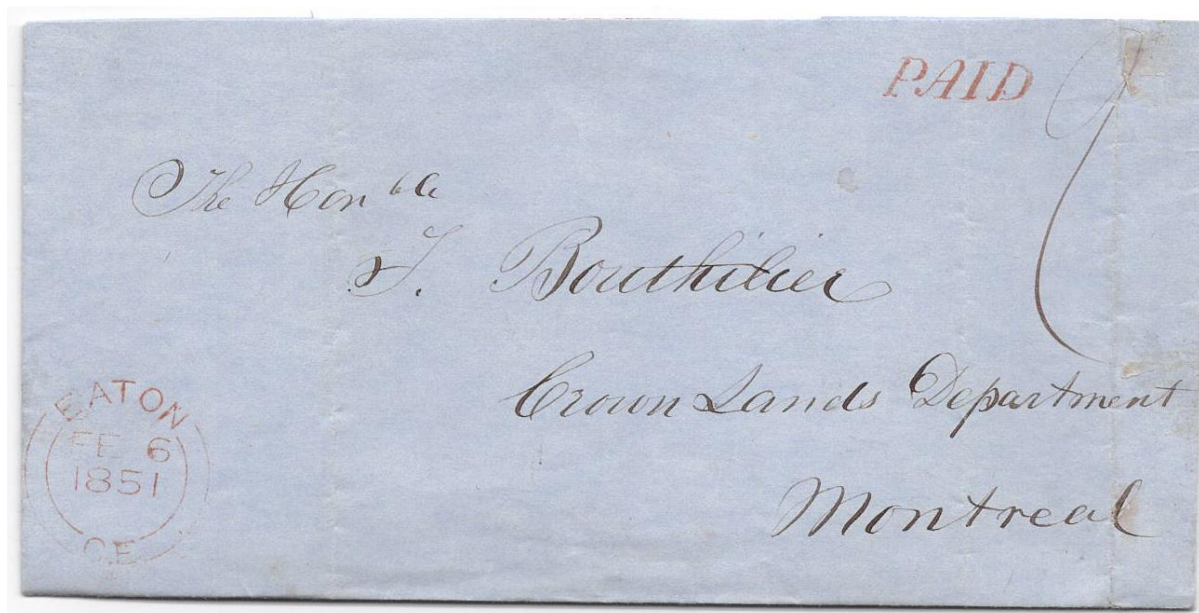 PAID 9
The Honble
T. Bouthilier
Crown Lands Department
Montreal
EATON
FE 6
1851
C.E